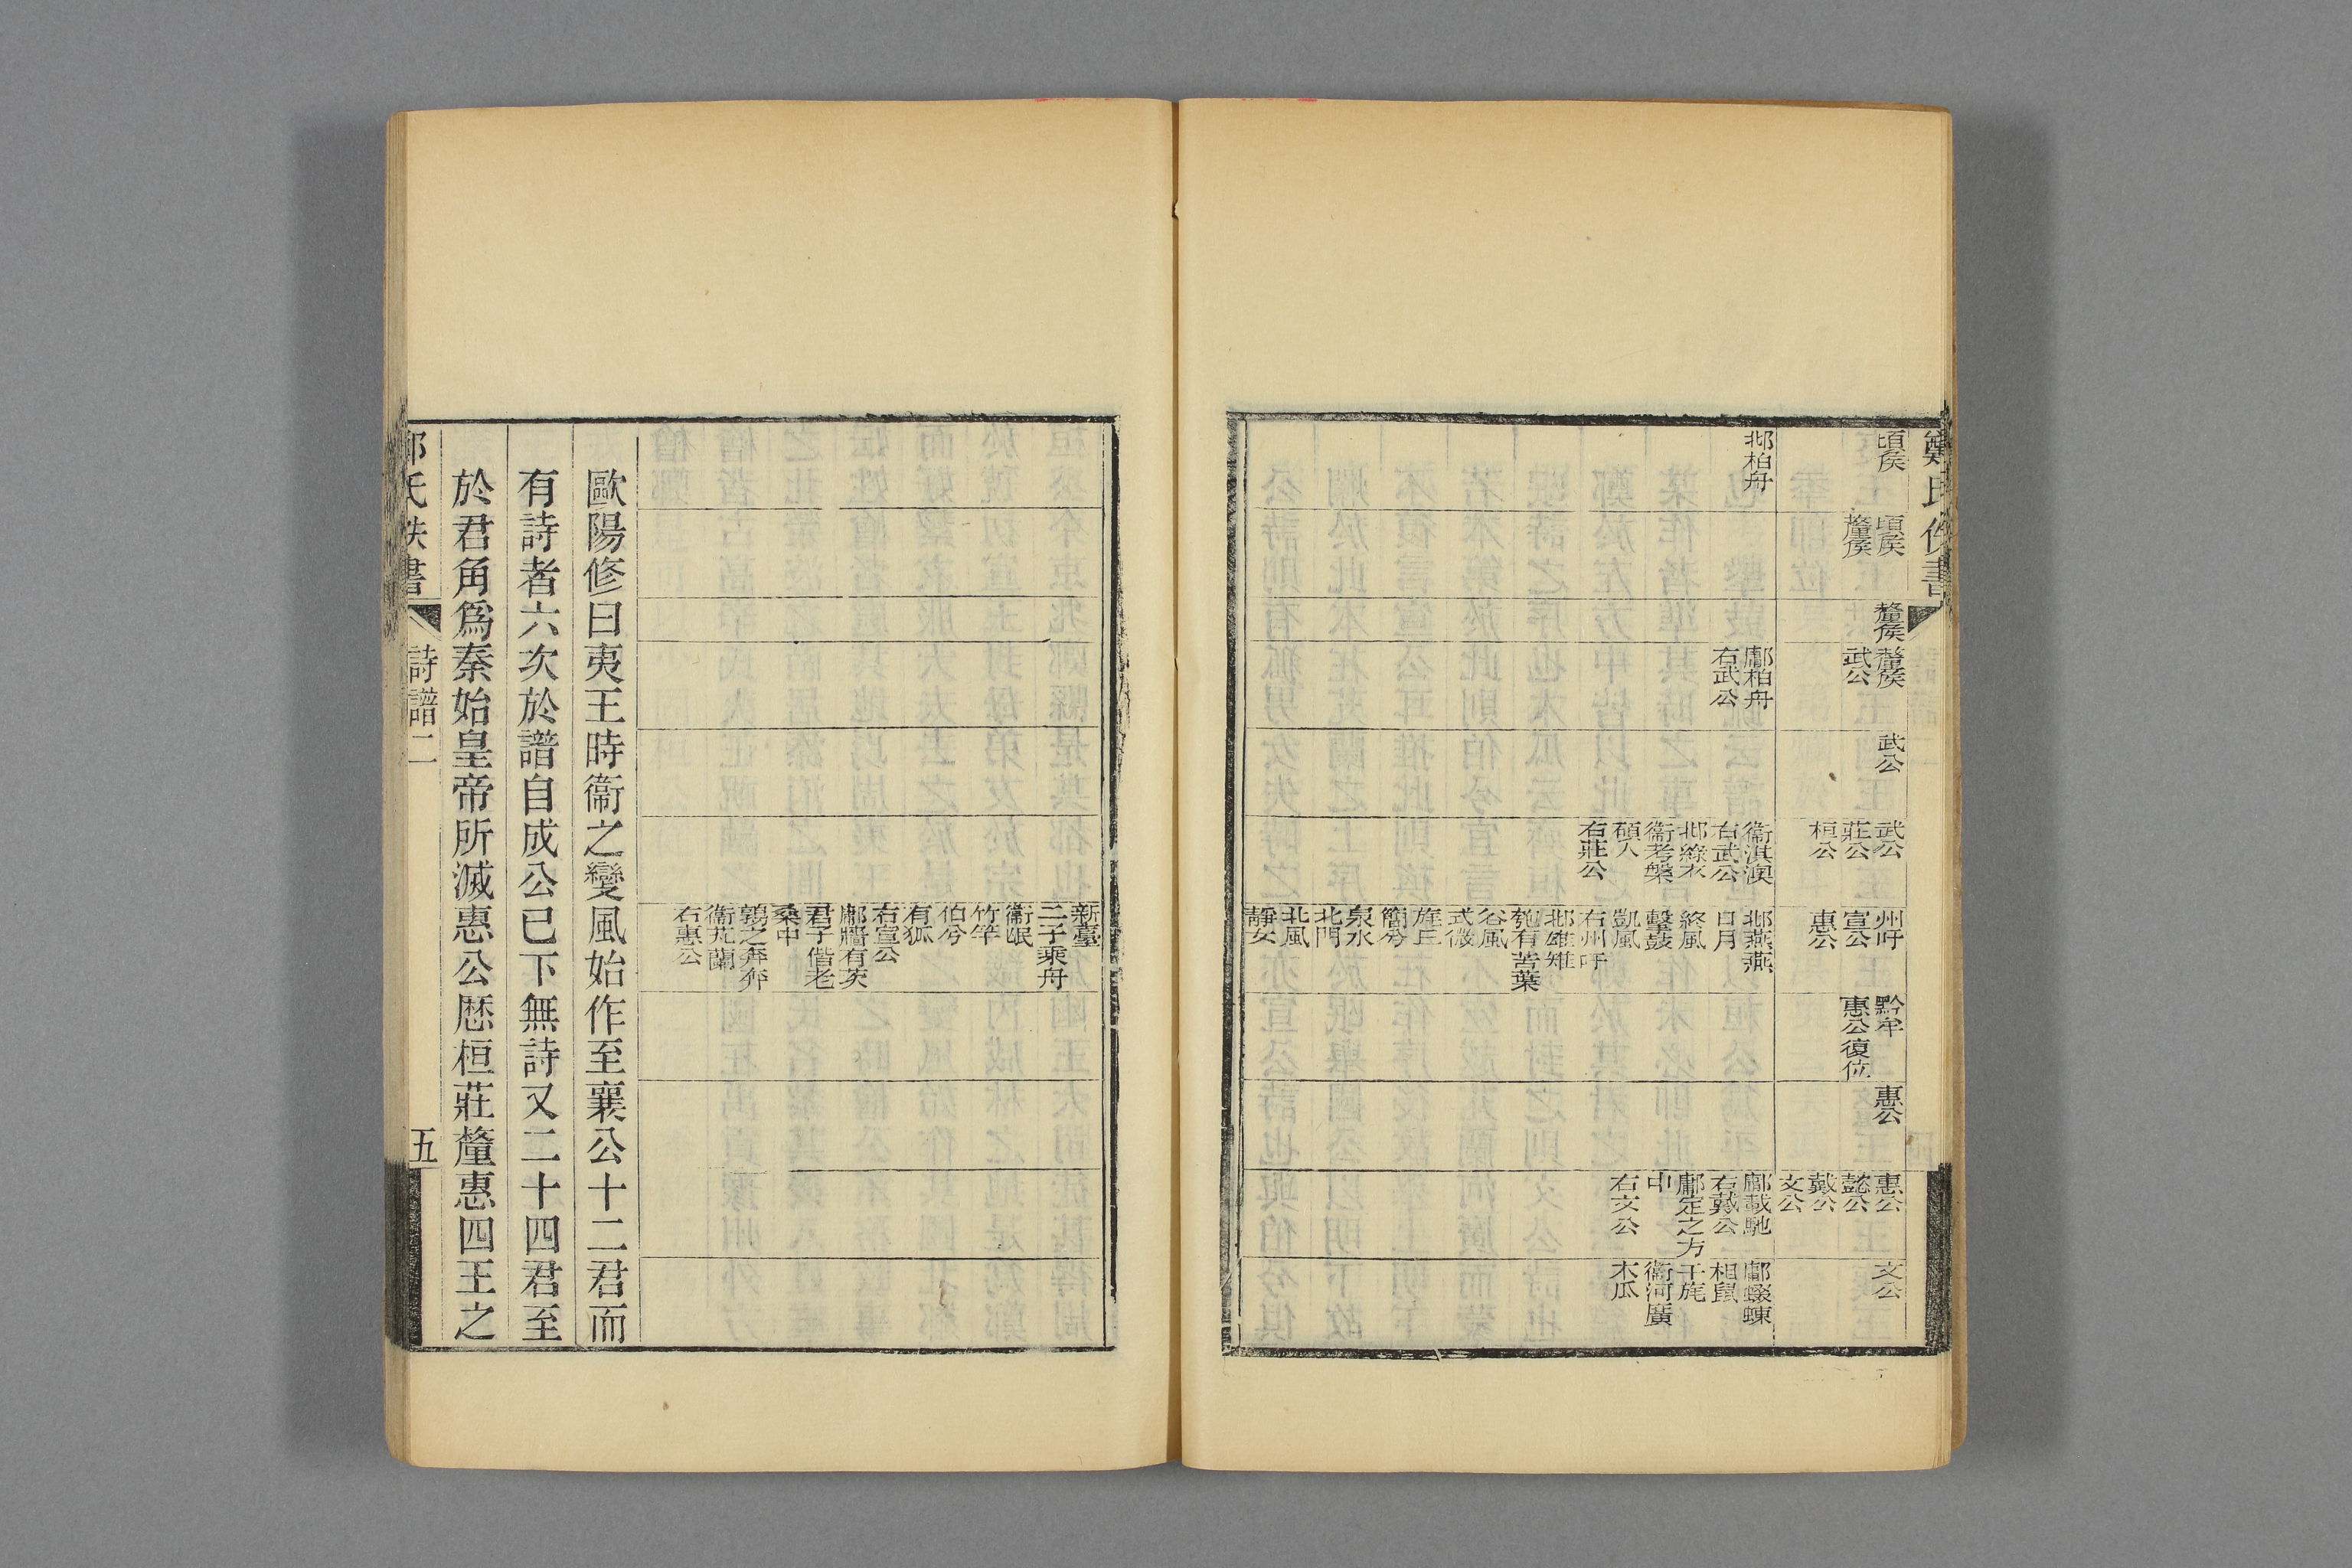 鄭氏佚書
頃侯
頃侯
釐侯
釐侯
釐侯
武公
武公
武公
莊公
桓公
州吁
宣公
惠公
黔牟
惠公復位
惠公
惠公
懿公
戴公
文公
文公
邶柏舟
鄘柏舟
右武公
衞淇澳
右武公
邶綠衣
衞考槃
碩人
右莊公
邶燕燕
日月
終風
擊鼓
凱風
右州吁
邶雄雉
匏有苦葉
谷風
式微
旄丘
簡兮
泉水
北門
北風
靜女
鄘載馳
右戴公
鄘定之方
中
右文公
鄘蝃蝀
相鼠
干旄
衞河廣
木瓜
新臺
二子乘舟
衞氓
竹竿
伯兮
有狐
右宣公
鄘牆有茨
君子偕老
桑中
鶉之奔奔
衞芄蘭
右惠公
歐陽修曰夷王時衞之變風始作至襄公十二君而
有詩者六次於譜自成公已下無詩又二十四君至
於君角爲秦始皇帝所滅惠公歷桓莊釐惠四王之
鄭氏佚書
詩譜二
五